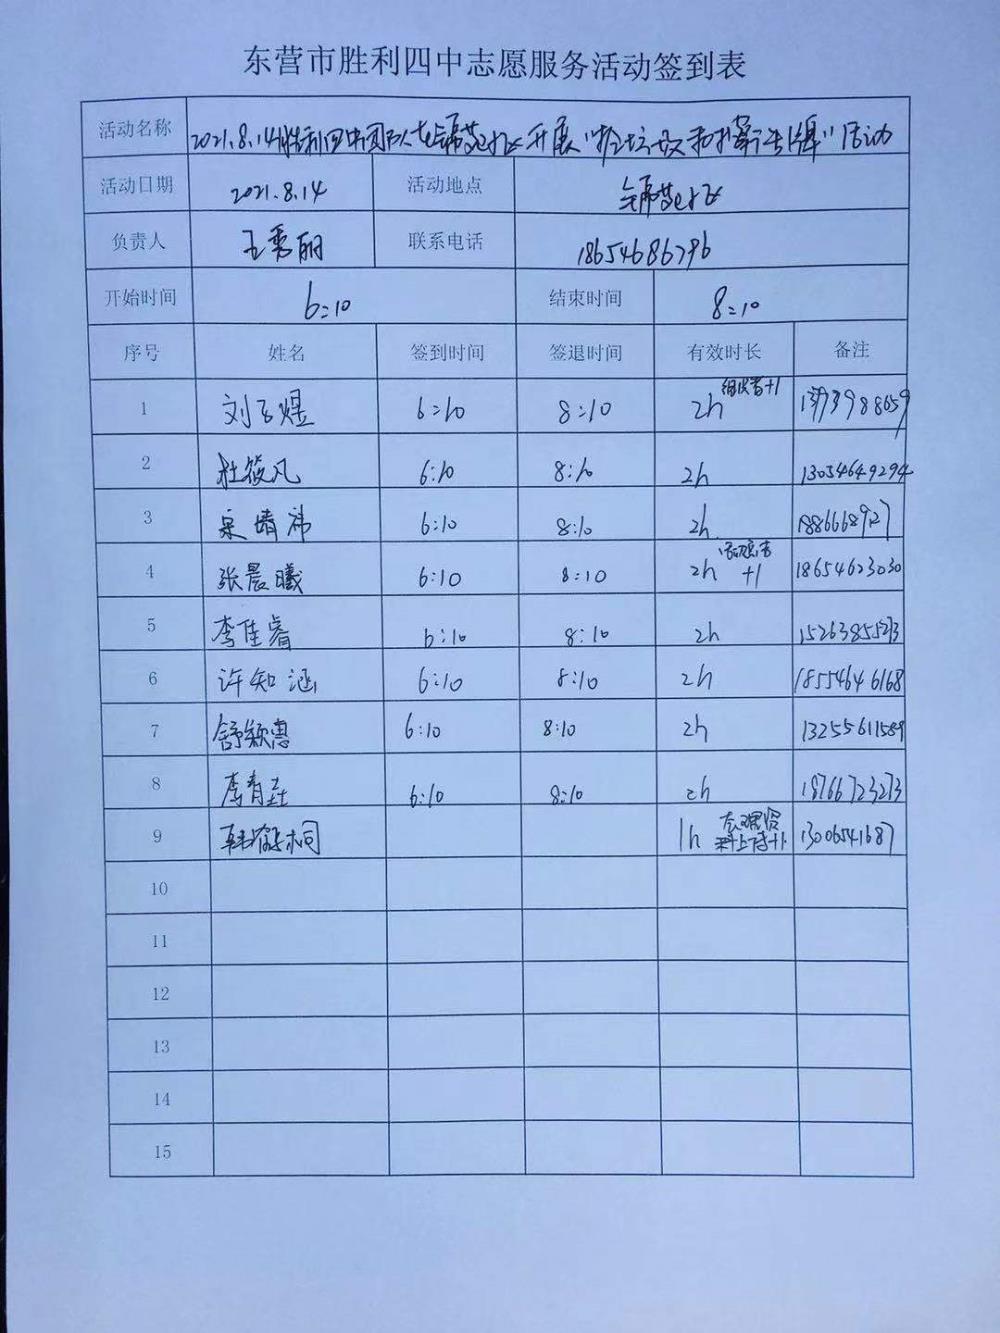 东营市胜利四中志愿服务活动签到表
活动名称 2021.8.14胜利四中团队在 开展“捡垃圾和 告牌”活动
活动日期 2021.8.14 活动地点
负责人 王秀丽 联系电话 18654686796
开始时间 6:10 结束时间 8:10
序号 姓名 签到时间 签退时间 有效时长 备注
1 刘子煜 6:10 8:10 2h 组织者+1
2 杜筱凡 6:10 8:10 2h 13054649294
3 宋婧祎 6:10 8:10 2h 18866668927
4 张晨曦 6:10 8:10 2h +1 18654623030
5 李佳睿 6:10 8:10 2h 15263855273
6 许知涵 6:10 8:10 2h 18554646168
7 舒颖惠 6:10 8:10 2h 13255611589
8 李青 6:10 8:10 2h 18766723273
9 韩 桐 1h 13006541687
10
11
12
13
14
15